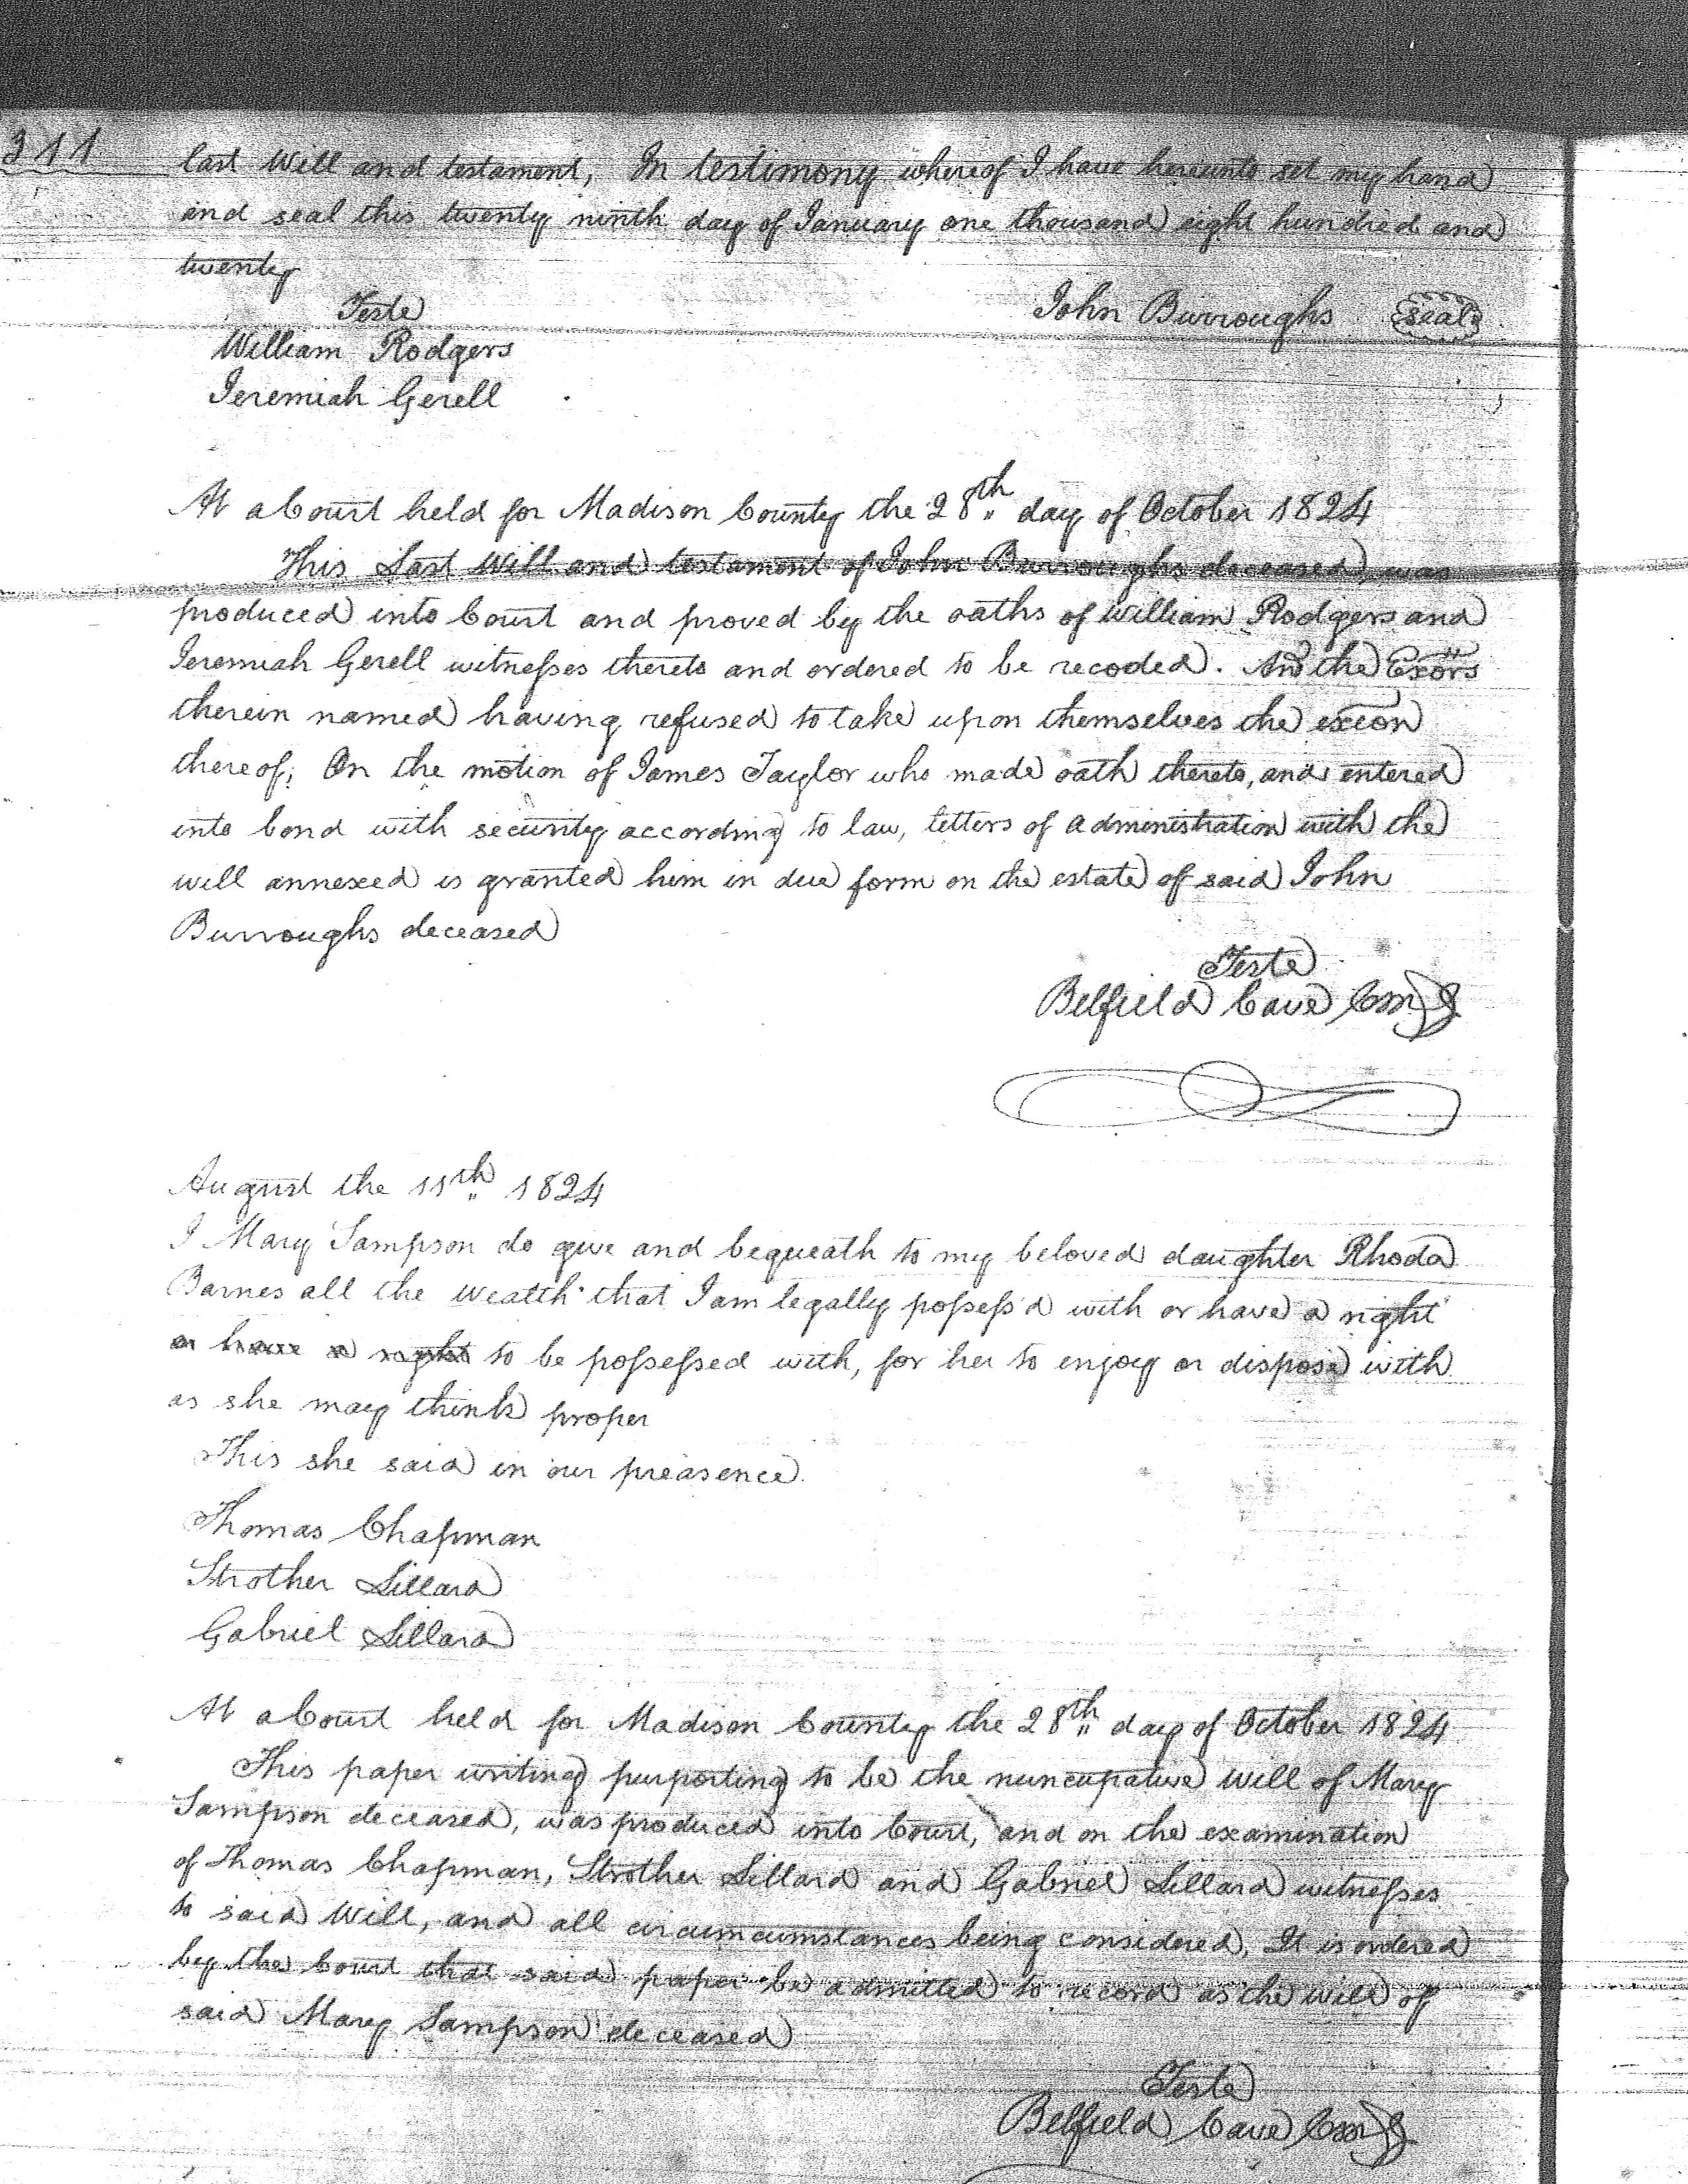 311
last Will and testament, In testimony whereof I have hereunto set my hand
and seal this twenty ninth day of January one thousand eight hundred and
twenty
Teste
John Burroughs seal
William Rodgers
Jeremiah Gerell
At a Court held for Madison County the 28th day of October 1824
This Last Will and testament of John Burroughs deceased, was
produced into Court and proved by the oaths of William Rodgers and
Jeremiah Gerell witnesses thereto and ordered to be recoded. And the Exors
therein named having refused to take upon themselves the exeon
thereof; On the motion of James Taylor who made oath thereto, and entered
into bond with security according to law, letters of administration with the
will annexed is granted him in due form on the estate of said John
Burroughs deceased
Teste
Belfield Cave CMC
August the 11th 1824
I Mary Sampson do give and bequeath to my beloved daughter Rhoda
Barnes all the wealth that I am legally possess'd with or have a right
or have a right to be possessed with, for her to enjoy or dispose with
as she may think proper
This she said in our preasence
Thomas Chapman
Strother Lillard
Gabriel Lillard
At a Court held for Madison County the 28th day of October 1824
This paper writing purporting to be the nuncupative will of Mary
Sampson deceased, was produced into Court, and on the examination
of Thomas Chapman, Strother Lillard and Gabriel Lillard witnesses
to said Will, and all circumcumstances being considered, It is ordered
by the Court that said paper be admitted to record as the will of
said Mary Sampson deceased
Teste
Belfield Cave CMC